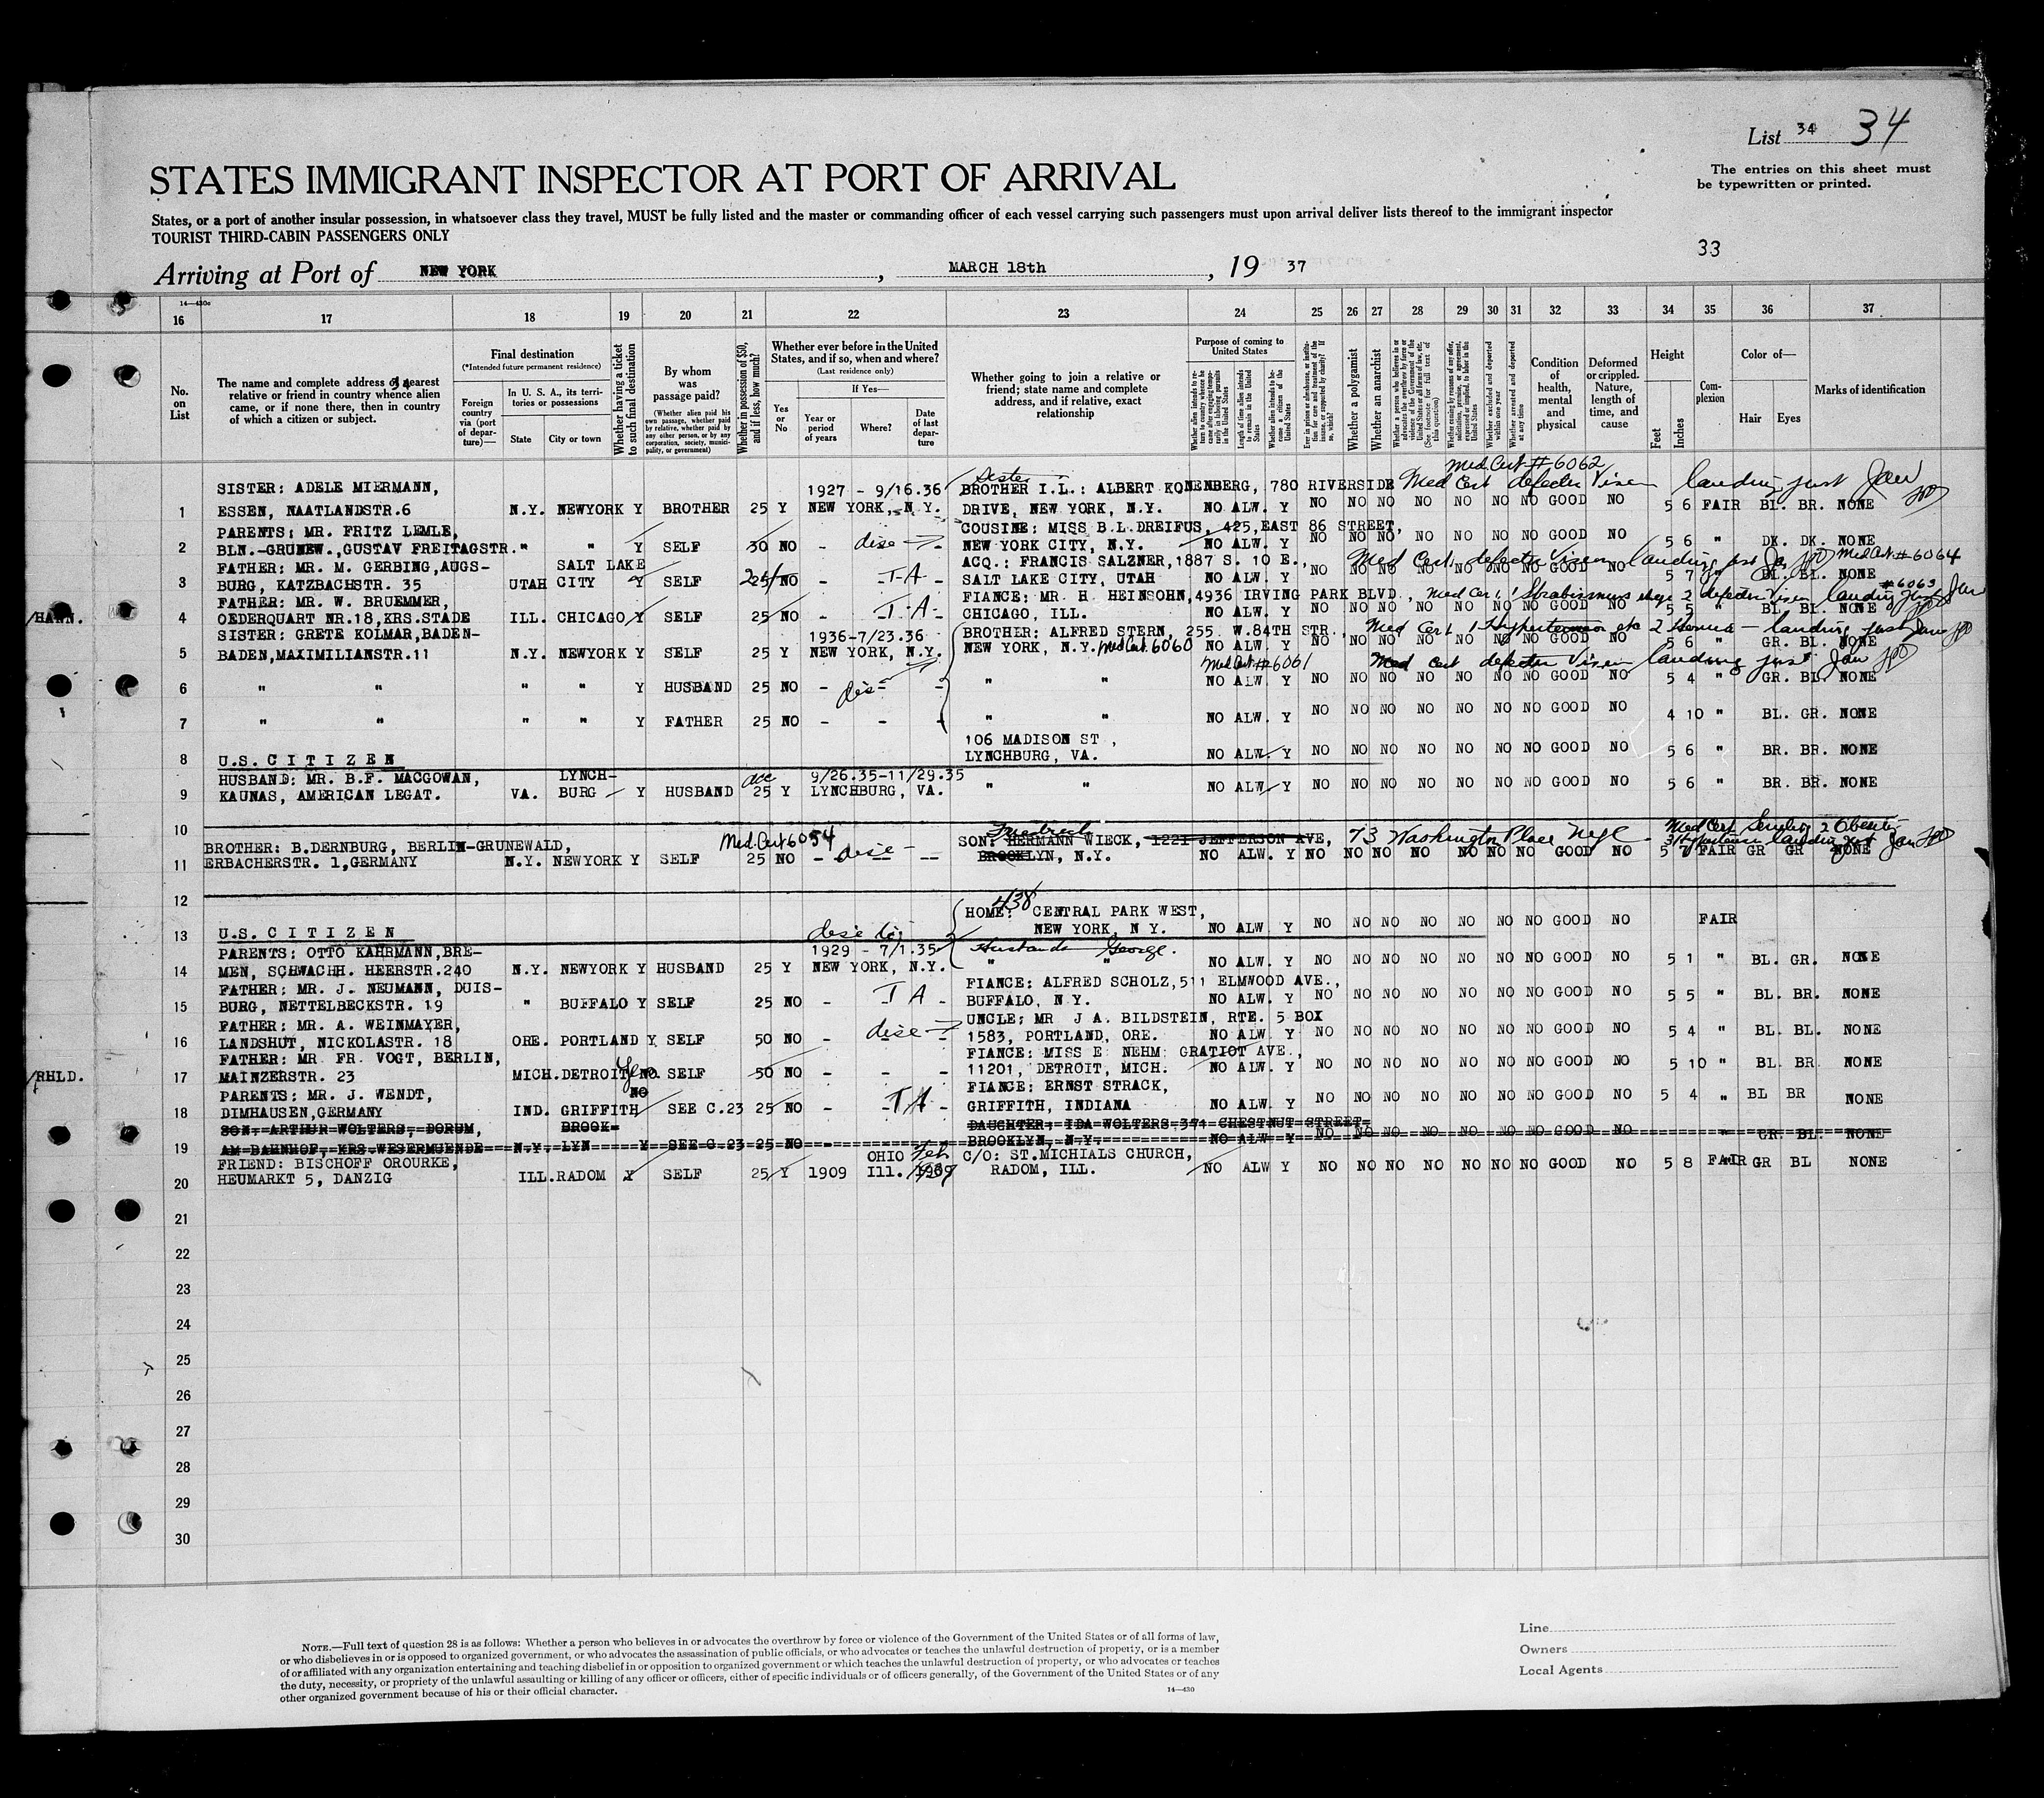 List 34 34
The entries on this sheet must
be typewritten or printed.
STATES IMMIGRANT INSPECTOR AT PORT OF ARRIVAL
States, or a port of another insular possession, in whatsoever class they travel, MUST be fully listed and the master or commanding officer of each vessel carrying such passengers must upon arrival deliver lists thereof to the immigrant inspector
TOURIST THIRD-CABIN PASSENGERS ONLY
33
Arriving at Port of NEW YORK, MARCH 18th, 19 37
14—430c
16 17 18 19 20 21 22 23 24 25 26 27 28 29 30 31 32 33 34 35 36 37
No. on List
The name and complete address of nearest relative or friend in country whence alien came, or if none there, then in country of which a citizen or subject.
Final destination
(*Intended future permanent residence)
Foreign country via (port of departure)—
In U. S. A., its territories or possessions
State
City or town
Whether having a ticket to such final destination
By whom was passage paid?
(Whether alien paid his own passage, whether paid by relative, whether paid by any other person, or by any corporation, society, municipality, or government)
Whether in possession of $50, and if less, how much?
Whether ever before in the United States, and if so, when and where?
(Last residence only)
Yes or No
If Yes—
Year or period of years
Where?
Date of last departure
Whether going to join a relative or friend; state name and complete address, and if relative, exact relationship
Purpose of coming to United States
Whether alien intends to return to country whence he came after engaging temporarily in laboring pursuits in the United States
Length of time alien intends to remain in the United States
Whether alien intends to become a citizen of the United States
Ever in prison or almshouse, or institution for care and treatment of the insane, or supported by charity? If so, which?
Whether a polygamist
Whether an anarchist
Whether a person who believes in or advocates the overthrow by force or violence of the Government of the United States or all forms of law, etc. (See footnote for full text of this question)
Whether coming by reasons of any offer, solicitation, promise, or agreement, expressed or implied, to labor in the United States
Whether excluded and deported within one year
Whether arrested and deported at any time
Condition of health, mental and physical
Deformed or crippled. Nature, length of time, and cause
Height
Feet
Inches
Complexion
Color of—
Hair
Eyes
Marks of identification
Med Cert # 6062
SISTER: ADELE MIERMANN, 1927 - 9/16.36 Sister BROTHER I.L.: ALBERT KONENBERG, 780 RIVERSIDE Med Cert defective Vision landing just Jaw
1 ESSEN, NAATLANDSTR.6 N.Y. NEWYORK Y BROTHER 25 Y NEW YORK, N.Y. DRIVE, NEW YORK, N.Y. NO ALW. Y NO NO NO NO NO NO NO GOOD NO 5 6 FAIR BL. BR. NONE
PARENTS: MR. FRITZ LEMLE, COUSINE: MISS B.L.DREIFUS, 425,EAST 86 STREET,
2 BLN.-GRUNEW.,GUSTAV FREITAGSTR. " " Y SELF 30 NO - - NEW YORK CITY, N.Y. NO ALW. Y NO NO NO NO NO NO NO GOOD NO 5 6 " DK. DK. NONE
FATHER: MR. M. GERBING,AUGS- SALT LAKE ACQ.: FRANCIS SALZNER,1887 S. 10 E., Med Cert defective Vision landing just Med Cert #6064
3 BURG, KATZBACHSTR. 35 UTAH CITY Y SELF 25 NO - T A - SALT LAKE CITY, UTAH NO ALW. Y NO NO NO NO NO NO NO GOOD NO 5 7 " BL. BL. NONE
FATHER: MR. W. BRUEMMER, FIANCE: MR. H. HEINSOHN,4936 IRVING PARK BLVD., #6063
/HANN. 4 OEDERQUART NR.18,KRS.STADE ILL. CHICAGO Y SELF 25 NO - T A - CHICAGO, ILL. NO ALW. Y NO NO NO NO NO NO NO GOOD NO 5 5 " BL. BL. NONE
SISTER: GRETE KOLMAR,BADEN- 1936-7/23.36 BROTHER: ALFRED STERN, 255 W.84TH STR.,
5 BADEN,MAXIMILIANSTR.11 N.Y. NEWYORK Y SELF 25 Y NEW YORK, N.Y. NEW YORK, N.Y. Med Cert. 6060 NO ALW. Y NO NO NO NO NO NO NO GOOD NO 5 6 " GR. BL. NONE
Med Cert #6061 Med Cert defective Vision landing just Jaw
6 " " " " Y HUSBAND 25 NO - - " " NO ALW. Y NO NO NO NO NO NO NO GOOD NO 5 4 " GR. BL. NONE
7 " " " " Y FATHER 25 NO - - - " " NO ALW. Y NO NO NO NO NO NO NO GOOD NO 4 10 " BL. GR. NONE
106 MADISON ST ,
8 U.S. C I T I Z E N LYNCHBURG, VA. NO ALW. Y NO NO NO NO NO NO NO GOOD NO 5 6 " BR. BR. NONE
HUSBAND: MR. B.F. MACGOWAN, LYNCH- 9/26.35-11/29.35
9 KAUNAS, AMERICAN LEGAT. VA. BURG Y HUSBAND 25 Y LYNCHBURG, VA. " " NO ALW. Y NO NO NO NO NO NO NO GOOD NO 5 6 " BR. BR. NONE
10
BROTHER: B.DERNBURG, BERLIN-GRUNEWALD, Med. Cert 6054 SON: HERMANN WIECK, 1221 JEFFERSON AVE, 73 Washington Place
11 ERBACHERSTR. 1,GERMANY N.Y. NEWYORK Y SELF 25 NO - -- -- BROOKLYN, N.Y. NO ALW. Y NO NO NO NO NO NO NO GOOD NO 5 FAIR GR GR NONE
12
438
HOME: CENTRAL PARK WEST,
13 U.S. C I T I Z E N NEW YORK, N Y. NO ALW Y NO NO NO NO NO NO NO GOOD NO FAIR
PARENTS: OTTO KAHRMANN,BRE- 1929 - 7/1.35 Husband George.
14 MEN, SCHWACHH. HEERSTR.240 N.Y. NEWYORK Y HUSBAND 25 Y NEW YORK, N.Y. " " NO ALW. Y NO NO NO NO NO NO NO GOOD NO 5 1 " BL. GR. NONE
FATHER: MR. J. NEUMANN, DUIS- FIANCE: ALFRED SCHOLZ,511 ELMWOOD AVE.,
15 BURG, NETTELBECKSTR. 19 " BUFFALO Y SELF 25 NO - T A - BUFFALO, N.Y. NO ALW. Y NO NO NO NO NO NO NO GOOD NO 5 5 " BL. BR. NONE
FATHER: MR. A. WEINMAYER, UNCLE: MR J A. BILDSTEIN, RTE. 5 BOX
16 LANDSHUT, NICKOLASTR. 18 ORE. PORTLAND Y SELF 50 NO - - - 1583, PORTLAND, ORE. NO ALW. Y NO NO NO NO NO NO NO GOOD NO 5 4 " BL. BL. NONE
FATHER: MR FR. VOGT, BERLIN, Yes FIANCE: MISS E NEHM GRATIOT AVE.,
/RHLD. 17 MAINZERSTR. 23 MICH.DETROIT NO SELF 50 NO - - - 11201, DETROIT, MICH. NO ALW. Y NO NO NO NO NO NO NO GOOD NO 5 10 " BL. BR NONE
PARENTS: MR. J. WENDT, NO FIANCE: ERNST STRACK,
18 DIMHAUSEN,GERMANY IND. GRIFFITH SEE C.23 25 NO - T A - GRIFFITH, INDIANA NO ALW. Y NO NO NO NO NO NO NO GOOD NO 5 4 " BL BR NONE
SON: ARTHUR WOLTERS, DORUM, BROOK- DAUGHTER: IDA WOLTERS,371 CHESTNUT STREET
19 AM BAHNHOF, KRS.WESERMUENDE N.Y. LYN Y SEE C.23 25 NO - BROOKLYN, N.Y. NO ALW Y NO NO NO NO NO NO NO GOOD NO " GR. BL. NONE
FRIEND: BISCHOFF OROURKE, OHIO Feb C/O: ST.MICHIALS CHURCH,
20 HEUMARKT 5, DANZIG ILL.RADOM Y SELF 25 Y 1909 Ill. RADOM, ILL. NO ALW Y NO NO NO NO NO NO NO GOOD NO 5 8 FAIR GR BL NONE
21
22
23
24
25
26
27
28
29
30
NOTE.—Full text of question 28 is as follows: Whether a person who believes in or advocates the overthrow by force or violence of the Government of the United States or of all forms of law,
or who disbelieves in or is opposed to organized government, or who advocates the assassination of public officials, or who advocates or teaches the unlawful destruction of property, or is a member
of or affiliated with any organization entertaining and teaching disbelief in or opposition to organized government or which teaches the unlawful destruction of property, or who advocates or teaches
the duty, necessity, or propriety of the unlawful assaulting or killing of any officer or officers, either of specific individuals or of officers generally, of the Government of the United States or of any
other organized government because of his or their official character.
14—430
Line
Owners
Local Agents